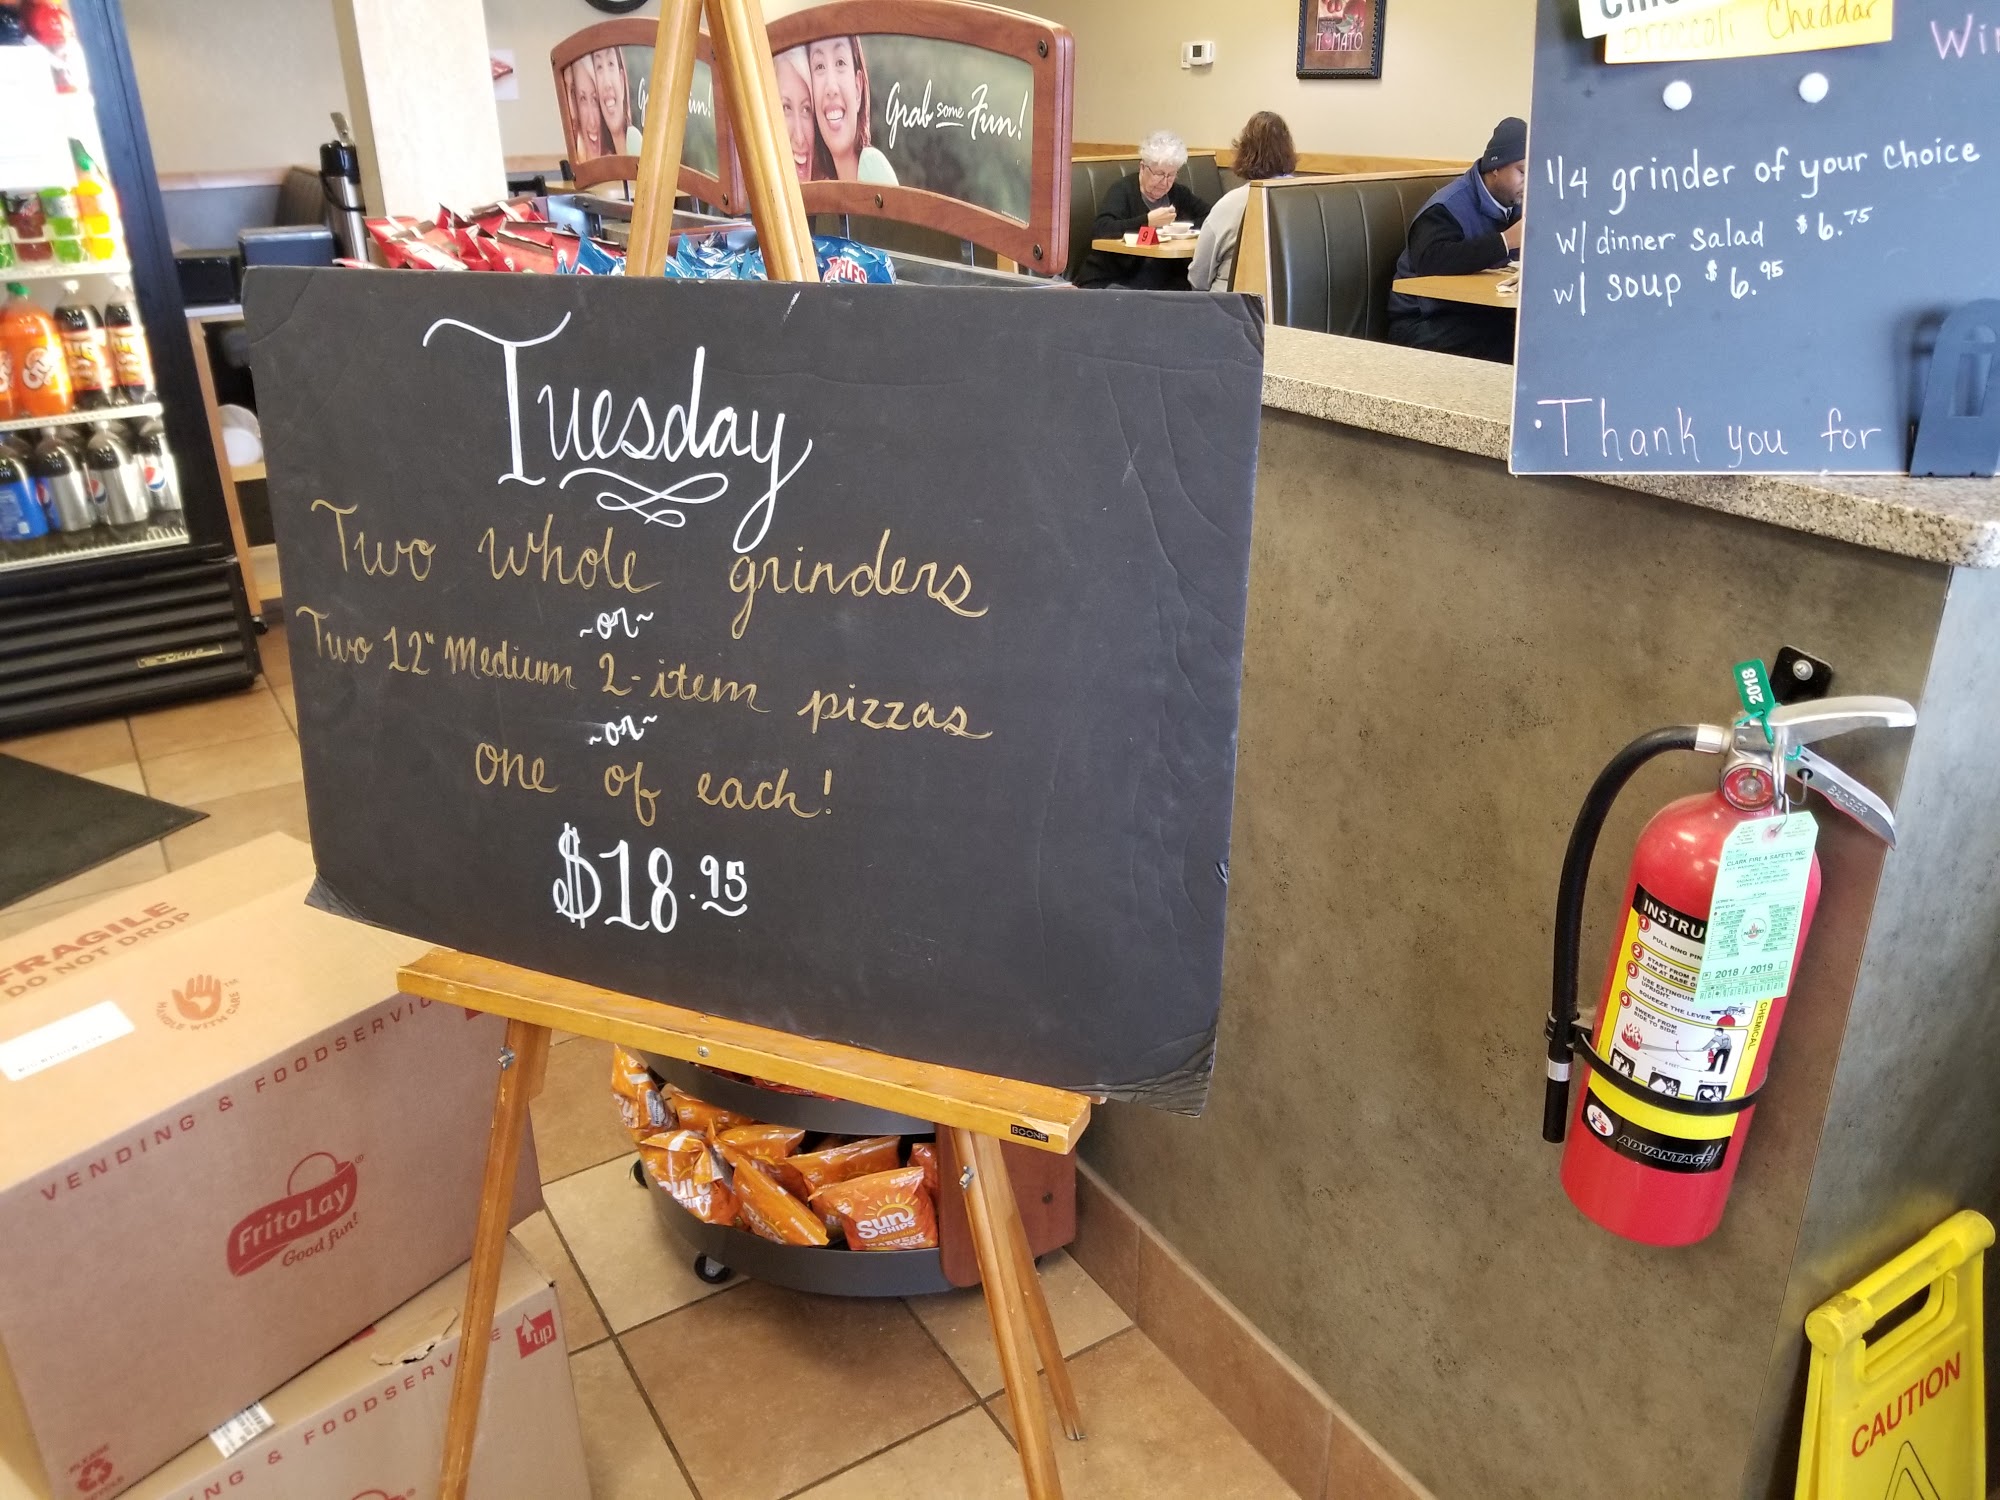 Tuesday
Two whole grinders
~or~
Two 12" Medium 2-item pizzas
~or~
one of each!
$18.95
Broccoli Cheddar
1/4 grinder of your choice
w/ dinner salad $6.75
w/ soup $6.95
Thank you for
Grab some Fun!
TOMATO
9
FRAGILE
DO NOT DROP
HANDLE WITH CARE
VENDING & FOODSERVIC
FritoLay
Good fun!
PLEASE
up
NG & FOODSERV
BOONE
Sun
CHIPS
HARVEST
2018
BADGER
CLARK FIRE & SAFETY, INC
2018 / 2019
INSTRU
1 PULL RING PIN
2 START FROM 8
AIM AT BASE O
3 USE EXTINGUIS
UPRIGHT.
SQUEEZE THE LEVER.
4 SWEEP FROM
SIDE TO SIDE.
CHEMICAL
ADVANTAGE
CAUTION